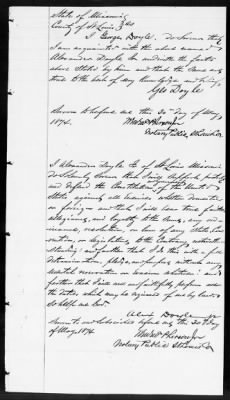 State of Missouri
County of St Louis } ss
I George Doyle, do swear that
I am acquainted with the above named
Alexander Doyle Jr and with the facts
above stated by him and that the same are
true to the best of my knowledge and belief
Geo Doyle
Sworn to before me this 30th day of May,
1874.
Notary Public
I Alexander Doyle Jr of St Louis Missouri
do Solemnly swear that I will support protect
and defend the Constitution of the United
States against all enemies whether domestic
or foreign and that I will bear true faith
allegiance, and loyalty to the same, any ordi-
nance, resolution, or law of any State Con-
vention, or Legislature to the Contrary notwith-
standing; and further that I do this with a full
determination, pledge, and purpose without any
mental reservation or evasion whatever; and
further that I will well and faithfully perform all
the duties which may be required of me by law So
So help me God.
Alex Doyle Jr
Sworn to and Subscribed before me this 30th day
of May, 1874
Notary Public